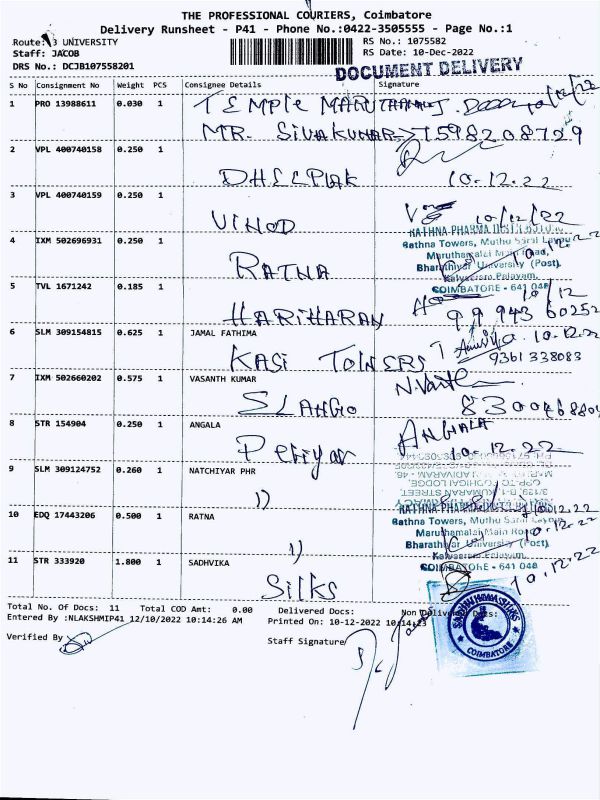 THE PROFESSIONAL COURIERS, Coimbatore
Delivery Runsheet - P41 - Phone No.:0422-3505555 - Page No.:1
Route: 3 UNIVERSITY
RS No.: 1075582
Staff: JACOB
RS Date: 10-Dec-2022
DRS No.: DCJB107558201
DOCUMENT DELIVERY
S No Consignment No Weight PCS Consignee Details Signature
1 PRO 13988611 0.030 1 TEMPLE 10/12/22
MR. SIVAKUMAR 1598208729
2 VPL 400740158 0.250 1
DHEEPAK 10.12.22
3 VPL 400740159 0.250 1
VINOD 10/12/22
RATHNA PHARMA
4 IXM 502696931 0.250 1 Rathna Towers, Muthu 10.12.22
RATNA Maruthamalai Main Road,
Bharathiyar University (Post)
Kalveeram Palayam,
5 TVL 1671242 0.185 1 COIMBATORE - 641 046 10/12
HARIHARAN 99943 60252
6 SLM 309154815 0.625 1 JAMAL FATHIMA 10.12.22
KASI TOWERS 9361 338083
7 IXM 502660202 0.575 1 VASANTH KUMAR
SLANGO
8 STR 154904 0.250 1 ANGALA ANGALA
Periyar 10.12.22
9 SLM 309124752 0.260 1 NATCHIYAR PHR
11
RATHNA
10 EDQ 17443206 0.500 1 RATNA Rathna Towers, Muthu 10.12.22
11 Maruthamalai Main Road
Bharathiyar University (Post)
Kalveeram Palayam,
11 STR 333920 1.800 1 SADHVIKA COIMBATORE - 641 046
Silks 10.12.22
Total No. Of Docs: 11 Total COD Amt: 0.00 Delivered Docs: Non Delivered Docs:
Entered By :NLAKSHMIP41 12/10/2022 10:14:26 AM Printed On: 10-12-2022 10:14:23
Verified By Staff Signature
COIMBATORE